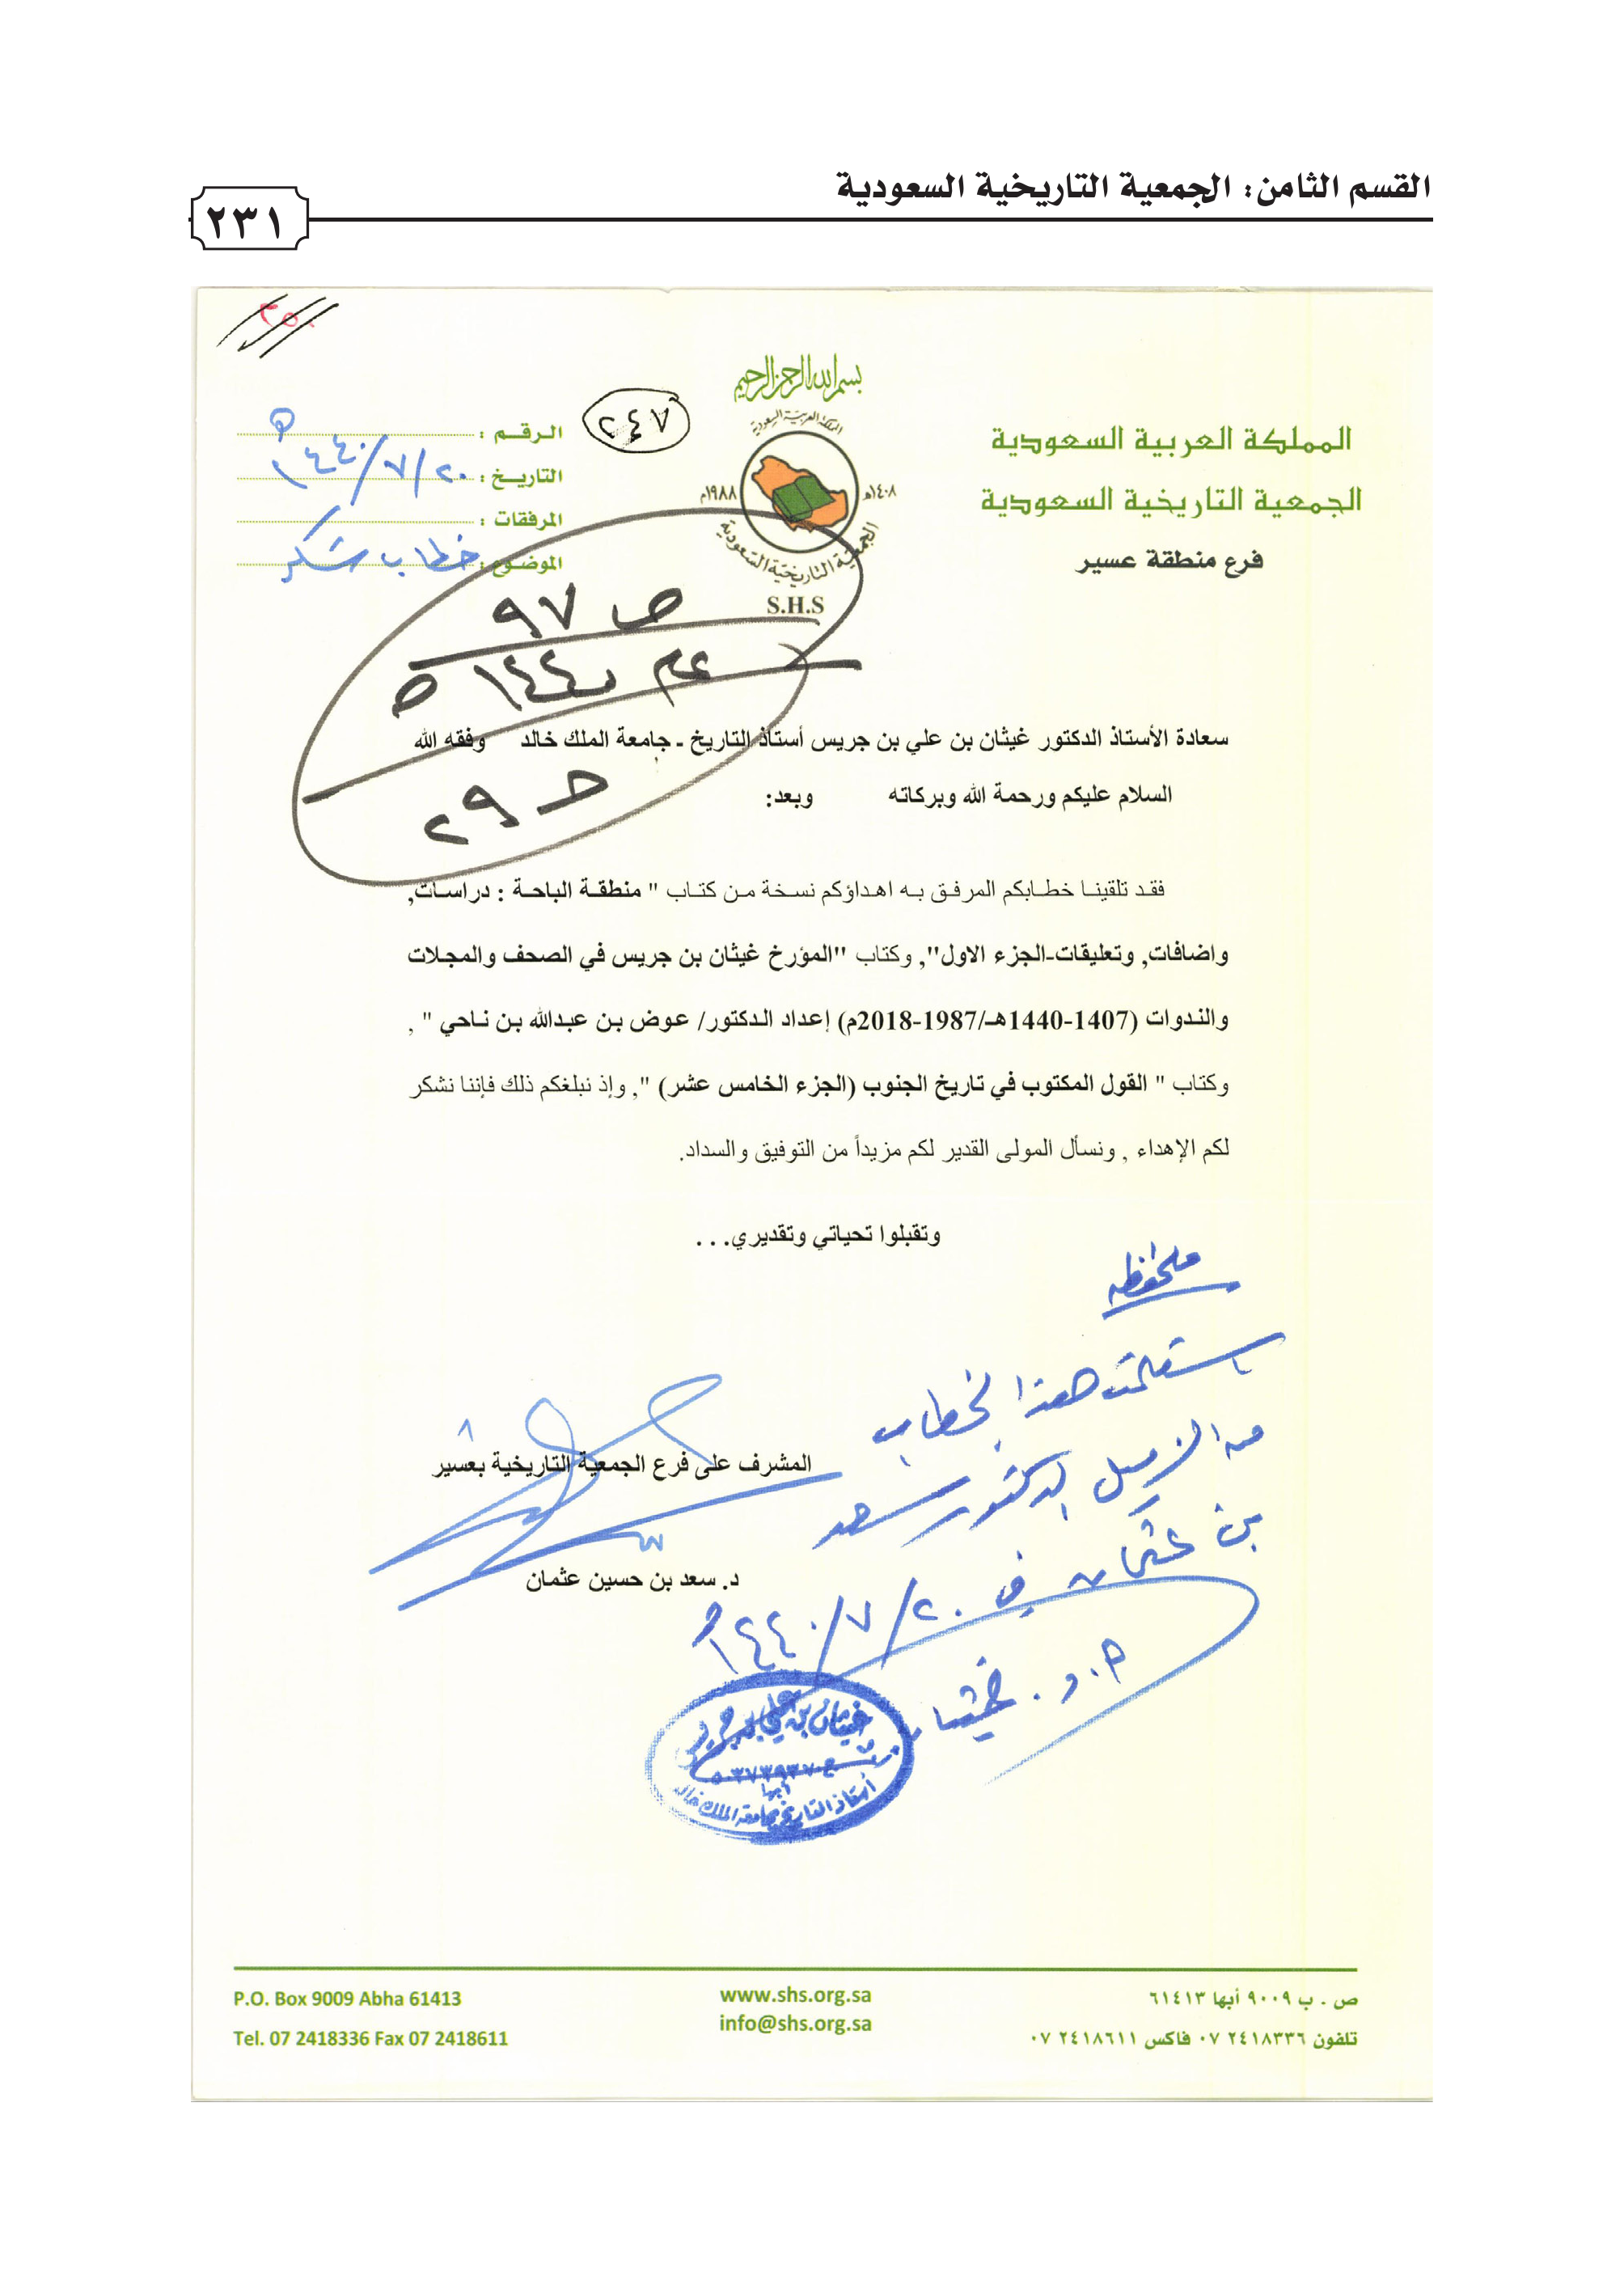 القسم الثامن: الجمعية التاريخية السعودية
٢٣١
٢٥٠
بسم الله الرحمن الرحيم
المملكة العربية السعودية
الجمعية التاريخية السعودية
فرع منطقة عسير
المملكة العربية السعودية
١٤٠٨هـ
١٩٨٨م
الجمعية التاريخية السعودية
S.H.S
٢٤٧
الرقم :
التاريخ : ٢٠/٧/١٤٤٠هـ
المرفقات :
الموضوع : خطاب شكر
ص ٩٧
عام ١٤٤٠هـ
ط ٢٩
سعادة الأستاذ الدكتور غيثان بن علي بن جريس أستاذ التاريخ ـ جامعة الملك خالد وفقه الله
السلام عليكم ورحمة الله وبركاته وبعد:
فقد تلقينا خطابكم المرفق به اهداؤكم نسخة من كتاب " منطقة الباحة : دراسات,
واضافات, وتعليقات-الجزء الاول", وكتاب "المؤرخ غيثان بن جريس في الصحف والمجلات
والندوات (1407-1440هـ/1987-2018م) إعداد الدكتور/ عوض بن عبدالله بن ناحي " ,
وكتاب " القول المكتوب في تاريخ الجنوب (الجزء الخامس عشر) ", وإذ نبلغكم ذلك فإننا نشكر
لكم الإهداء , ونسأل المولى القدير لكم مزيداً من التوفيق والسداد.
وتقبلوا تحياتي وتقديري...
المشرف على فرع الجمعية التاريخية بعسير
د. سعد بن حسين عثمان
ملحوظه
استلمت هذا الخطاب
من الزميل الدكتور سعد
بن عثمان في ٢٠/٧/١٤٤٠هـ
أ.د. غيثان
غيثان بن علي بن جريس
أبها
أستاذ التاريخ بجامعة الملك خالد
ص . ب ٩٠٠٩ أبها ٦١٤١٣
تلفون ٢٤١٨٣٣٦ ٠٧ فاكس ٢٤١٨٦١١ ٠٧
www.shs.org.sa
info@shs.org.sa
P.O. Box 9009 Abha 61413
Tel. 07 2418336 Fax 07 2418611